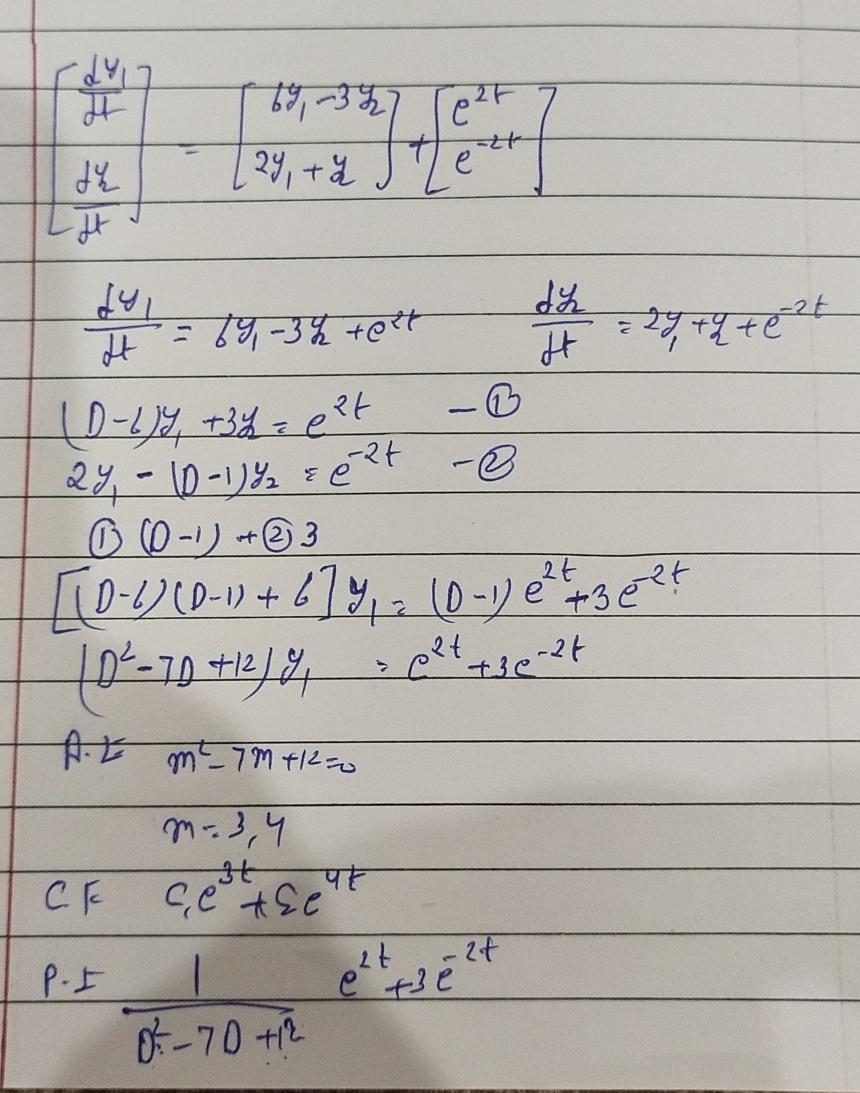 [dy₁/dt dy₂/dt] = [6y₁ - 3y₂ 2y₁ + y₂] + [e^2t e^-2t]
dy₁/dt = 6y₁ - 3y₂ + e^2t dy₂/dt = 2y₁ + y₂ + e^-2t
(D-6)y₁ + 3y₂ = e^2t - ①
2y₁ - (D-1)y₂ = e^-2t - ②
① (D-1) + ② 3
[(D-6)(D-1) + 6] y₁ = (D-1) e^2t + 3e^-2t
(D² - 7D + 12) y₁ = e^2t + 3e^-2t
A.E m² - 7m + 12 = 0
m = 3, 4
C F C₁e^3t + C₂e^4t
P.I 1/(D² - 7D + 12) e^2t + 3e^-2t